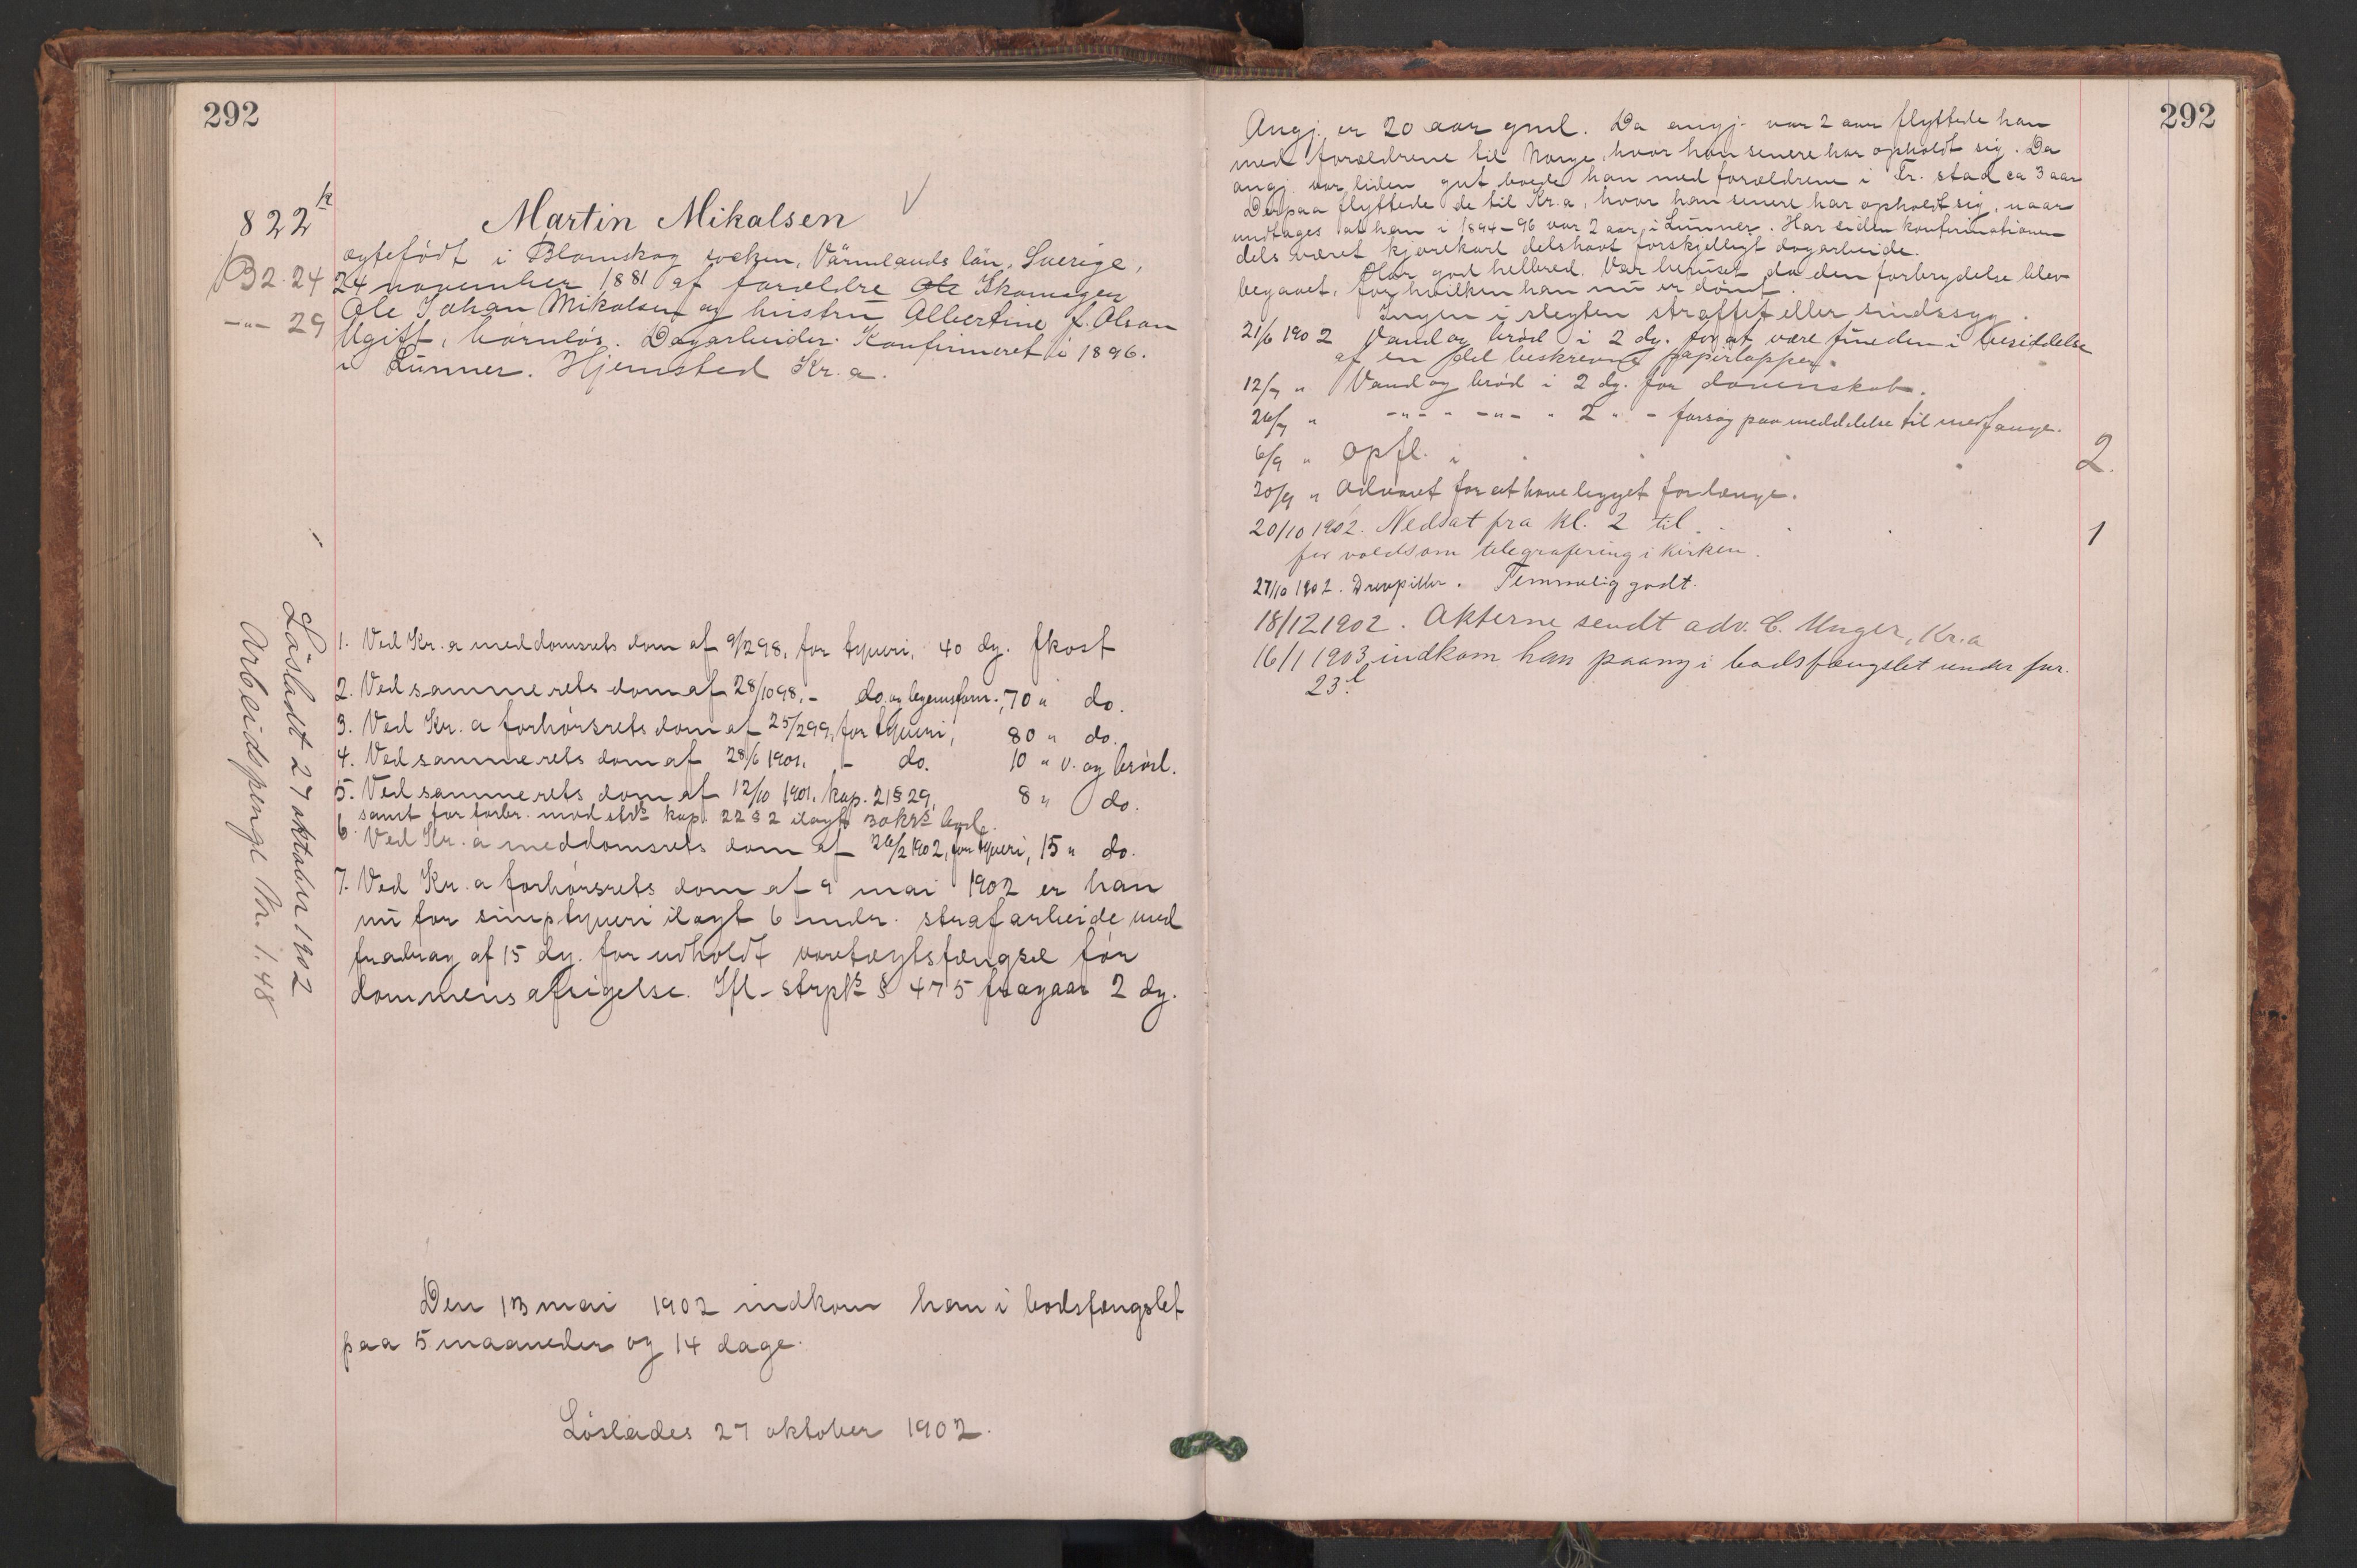 292
822 k
Martin Mikalsen √
B2. 24
-"- 29
ægtefødt i Blomskog socken, Värmlands län, Sverige,
24 november 1881 af forældre Skomager
Ole Johan Mikalsen og hustru Albertine f. Olson
Ugift, barnløs. Dagarbeider. Konfirmeret i 1896.
i Lunner. Hjemsted Kr.a.
1. Ved Kr.a meddomsrets dom af 9/2 98, for tyveri, 40 dg. fkost
2. Ved samme rets dom af 28/10 98, - do. og legemsforn., 70 " do.
3. Ved Kr.a forhørsrets dom af 25/2 99, for tyveri, 80 " do.
4. Ved samme rets dom af 28/6 1901. - do. 10 " v. og brød.
5. Ved samme rets dom af 12/10 1901. kap. 21 § 29, 8 " do.
samt for forbr. mod strl. kap. 22 § 2 ilagt 30 krs bod.
6. Ved Kr.a meddomsrets dom af 26/2 1902, for tyveri, 15 " do.
7. Ved Kr.a forhørsrets dom af 9 mai 1902 er han
nu for simp tyveri ilagt 6 mdr. strafarbeide med
fradrag af 15 dg. for udholdt varetægtsfængsel før
dommens afsigelse. Ifl. strpls § 475 fragaar 2 dg.
Løsladt 27 oktober 1902
Arbeidspenge Kr. 1,48
Den 13 mai 1902 indkom han i bodsfængslet
paa 5 maaneder og 14 dage.
Løslades 27 oktober 1902.
292
Angj. er 20 aar gml. Da angj. var 2 aar flyttede han
med forældrene til Norge, hvor han senere har opholdt sig. Da
angj. var liden gut boede han med forældrene i Fr.stad ca 3 aar
Derpaa flyttede de til Kr.a, hvor han senere har opholdt sig, naar
undtages at han i 1894-96 var 2 aar i Lunner. Har siden konfirmationen
dels været kjørekarl dels havt forskjelligt dagarbeide.
Har god helbred. Var beruset da den forbrydelse blev
begaaet, for hvilken han nu er dømt.
Ingen i slegten straffet eller sindssyg.
21/6 1902 Vand og brød i 2 dg. for at være funden i besiddelse
af en del beskrevne papirlapper.
12/7 " Vand og brød i 2 dg. for dovenskab.
26/7 " -"- " -"- " 2 " - forsøg paa meddelelse til medfange.
6/9 " Opfl. i 2.
20/9 " Advaret for at have ligget for længe.
20/10 1902. Nedsat fra kl. 2 til 1
for voldsom telegrafering i kirken.
27/10 1902. Drevpiller. Temmelig godt.
18/12 1902. Akterne sendt adv. C. Unger, Kr.a
16/1 1903 indkom han paany i bodsfængslet under fnr.
23 l